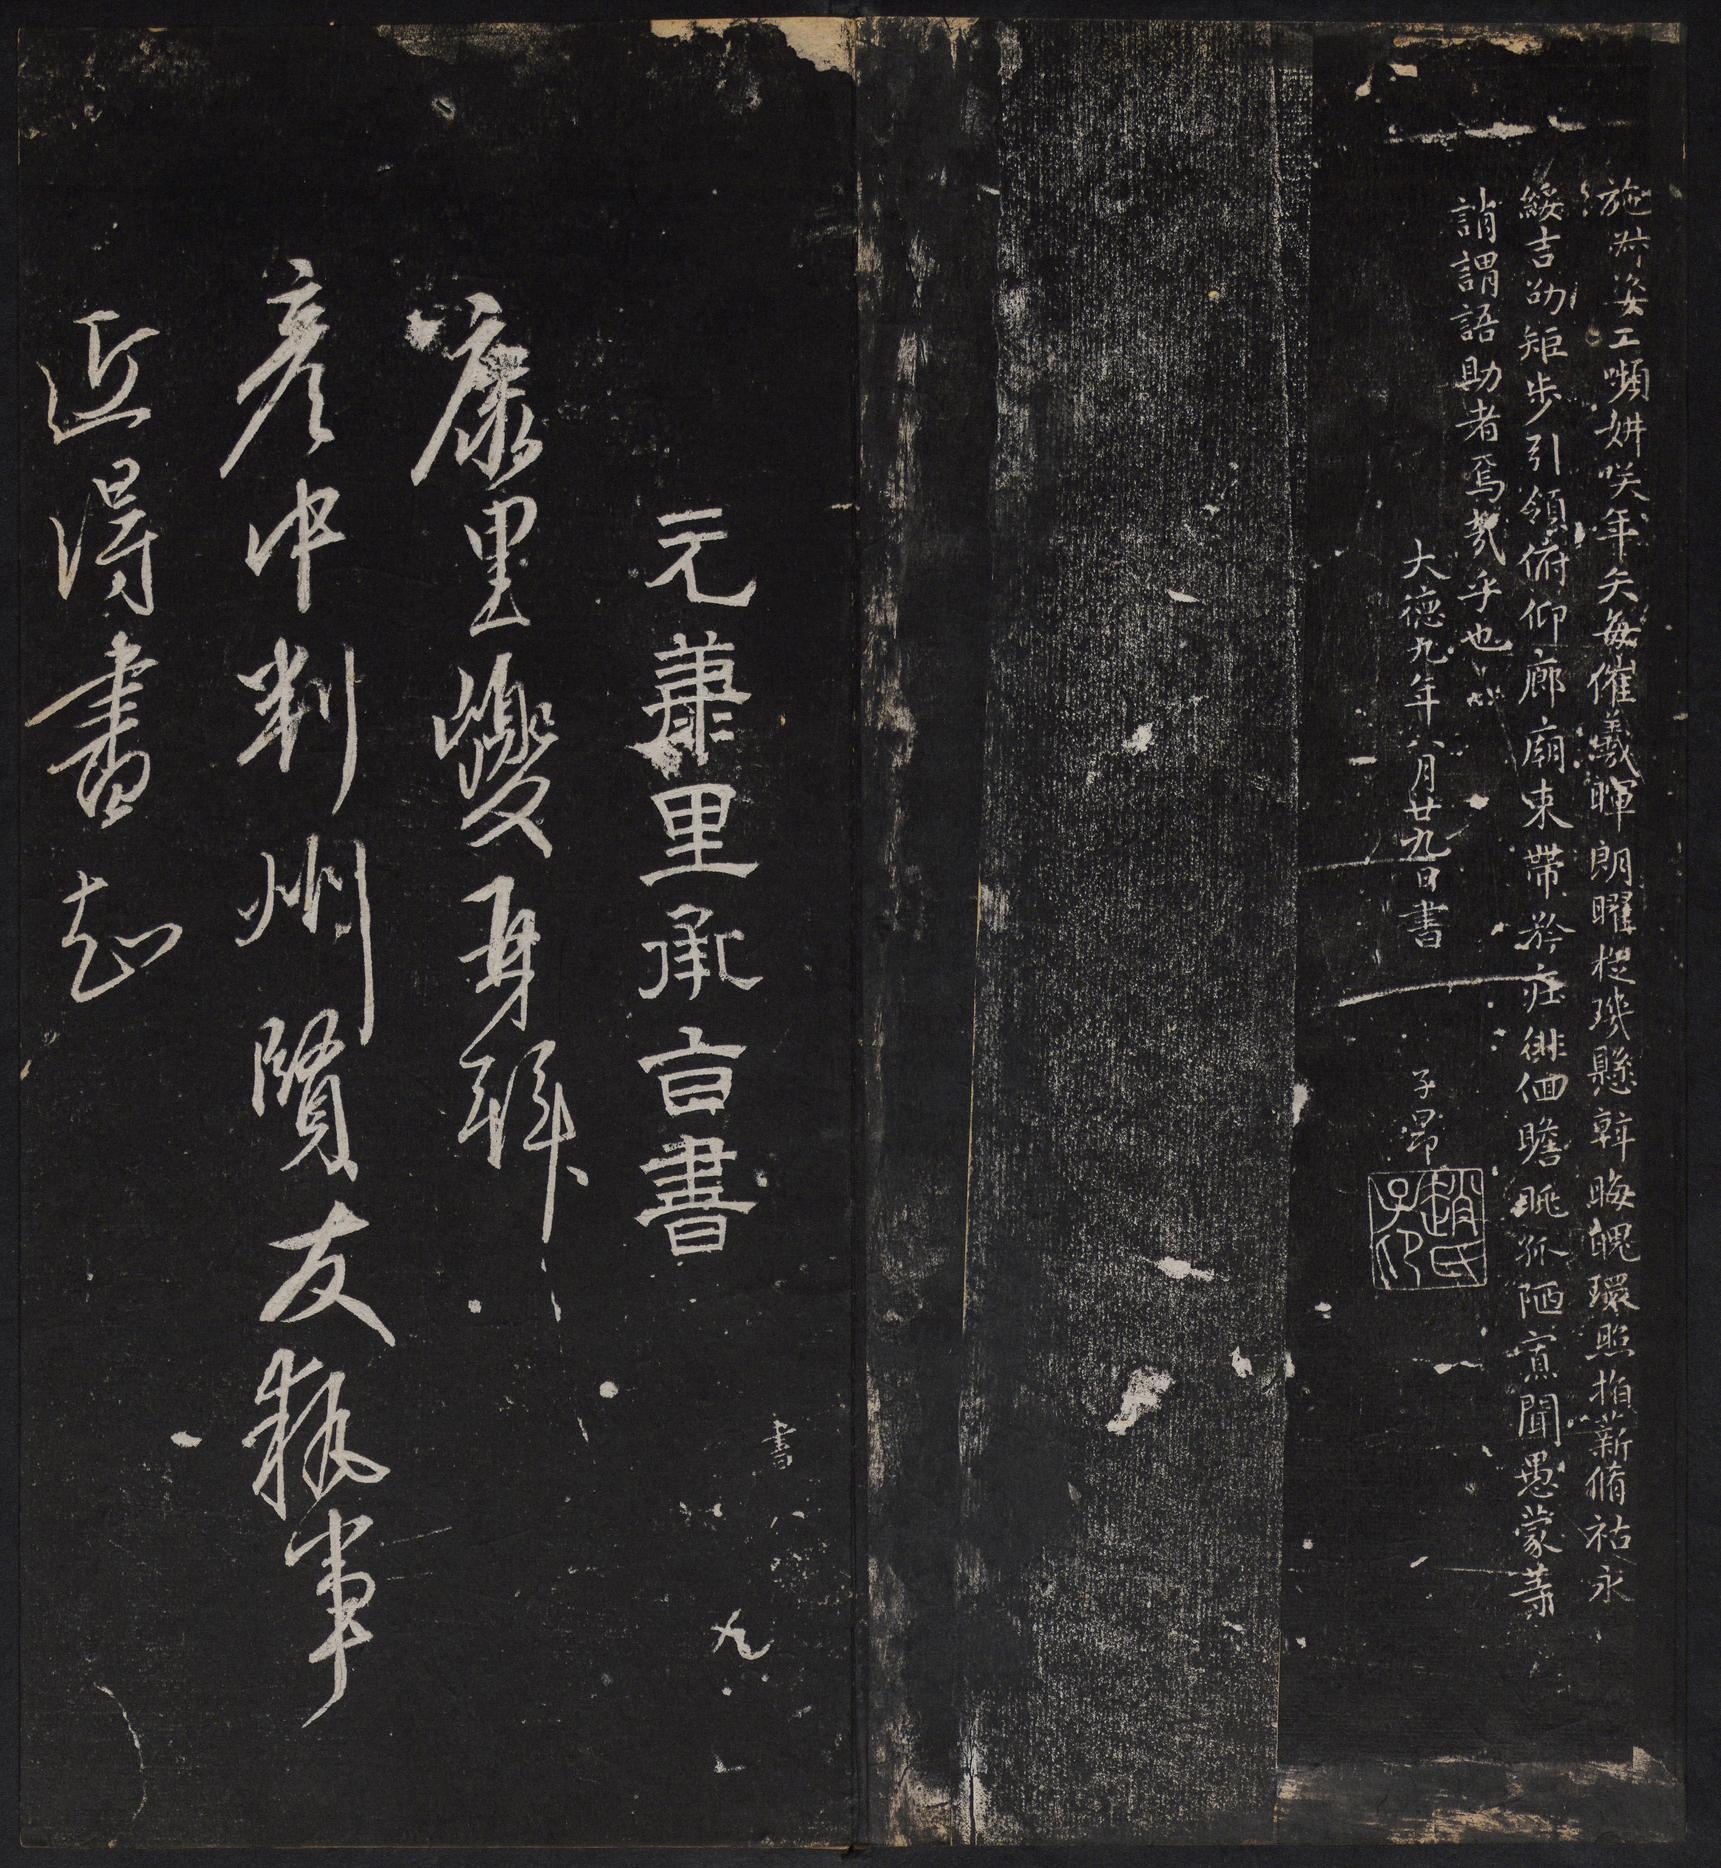 施淑姿工嚬妍咲年矢每催羲暉朗曜琁璣懸斡晦魄環照指薪脩祜永
綏吉劭矩步引領俯仰廊廟束帶矜莊徘徊瞻眺孤陋寡聞愚蒙等
誚謂語助者焉哉乎也
大德九年八月廿九日書
子昂
趙氏子印
元康里承旨書
書
九
康里巎再拜
彥中判州賢友執事
近得書知